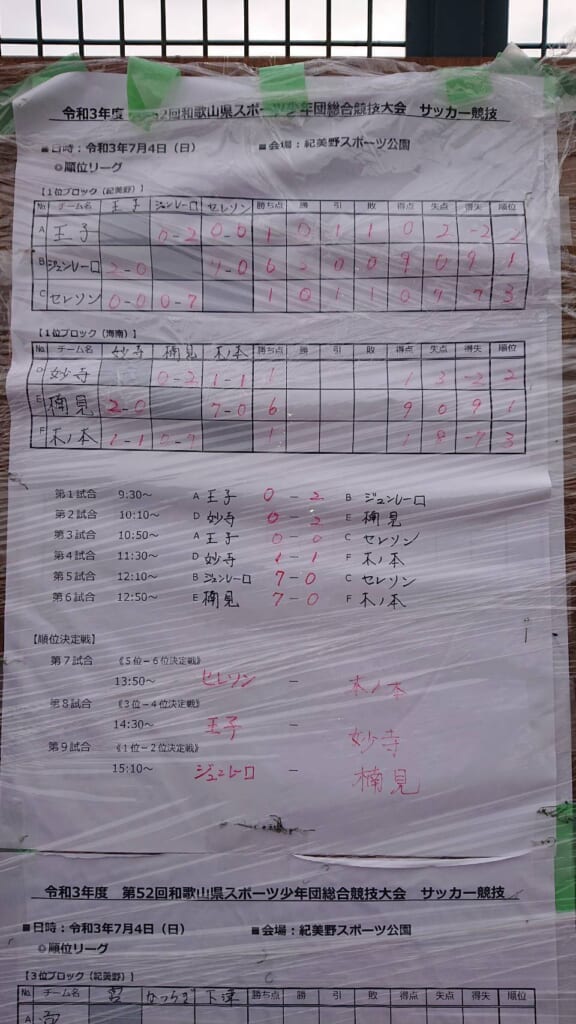 令和3年度 第52回和歌山県スポーツ少年団総合競技大会 サッカー競技
■日時：令和3年7月4日（日） ■会場：紀美野スポーツ公園
◎順位リーグ
【1位ブロック（紀美野）】
No. チーム名 王子 ジュンレーロ セレソン 勝ち点 勝 引 敗 得点 失点 得失 順位
A 王子 0-2 0-0 1 0 1 1 0 2 -2 2
B ジュンレーロ 2-0 7-0 6 2 0 0 9 0 9 1
C セレソン 0-0 0-7 1 0 1 1 0 7 -7 3
【1位ブロック（海南）】
No. チーム名 妙寺 楠見 木ノ本 勝ち点 勝 引 敗 得点 失点 得失 順位
D 妙寺 0-2 1-1 1 1 3 -2 2
E 楠見 2-0 7-0 6 9 0 9 1
F 木ノ本 1-1 0-7 1 1 8 -7 3
第1試合 9:30～ A 王子 0 - 2 B ジュンレーロ
第2試合 10:10～ D 妙寺 0 - 2 E 楠見
第3試合 10:50～ A 王子 0 - 0 C セレソン
第4試合 11:30～ D 妙寺 1 - 1 F 木ノ本
第5試合 12:10～ B ジュンレーロ 7 - 0 C セレソン
第6試合 12:50～ E 楠見 7 - 0 F 木ノ本
【順位決定戦】
第7試合 《5位－6位決定戦》
13:50～ セレソン - 木ノ本
第8試合 《3位－4位決定戦》
14:30～ 王子 - 妙寺
第9試合 《1位－2位決定戦》
15:10～ ジュンレーロ - 楠見
令和3年度 第52回和歌山県スポーツ少年団総合競技大会 サッカー競技
■日時：令和3年7月4日（日） ■会場：紀美野スポーツ公園
◎順位リーグ
【3位ブロック（紀美野）】
No. チーム名 宮 かつらぎ 下津 勝ち点 勝 引 敗 得点 失点 得失 順位
A 宮